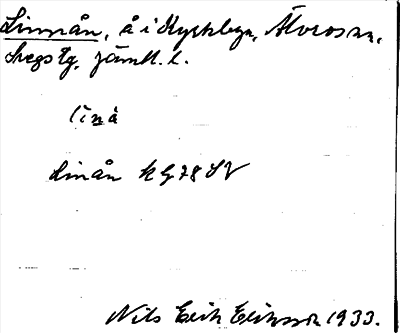 Linnån, å i Kyrkbyn, Älvros sn,
Svegs tg, Jämtl. l.
li̱nå
Linån k G78 SV
Nils Erik Eriksson 1933.